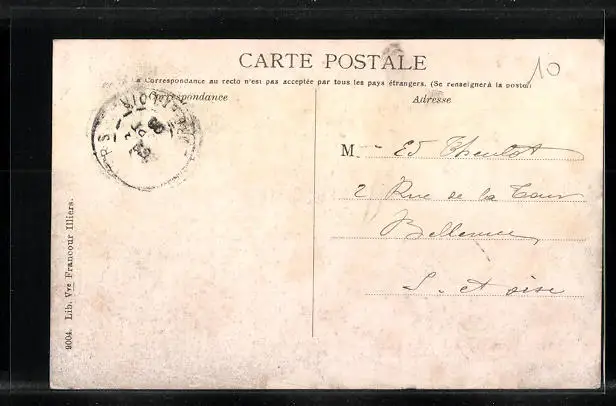 CARTE POSTALE
10
La Correspondance au recto n'est pas acceptée par tous les pays étrangers. (Se renseigner à la poste)
Correspondance
Adresse
M. Ed Theulot
2 Rue de la Tour
Bellevue
S. et oise
9004. Lib. Vve Francour Illiers.